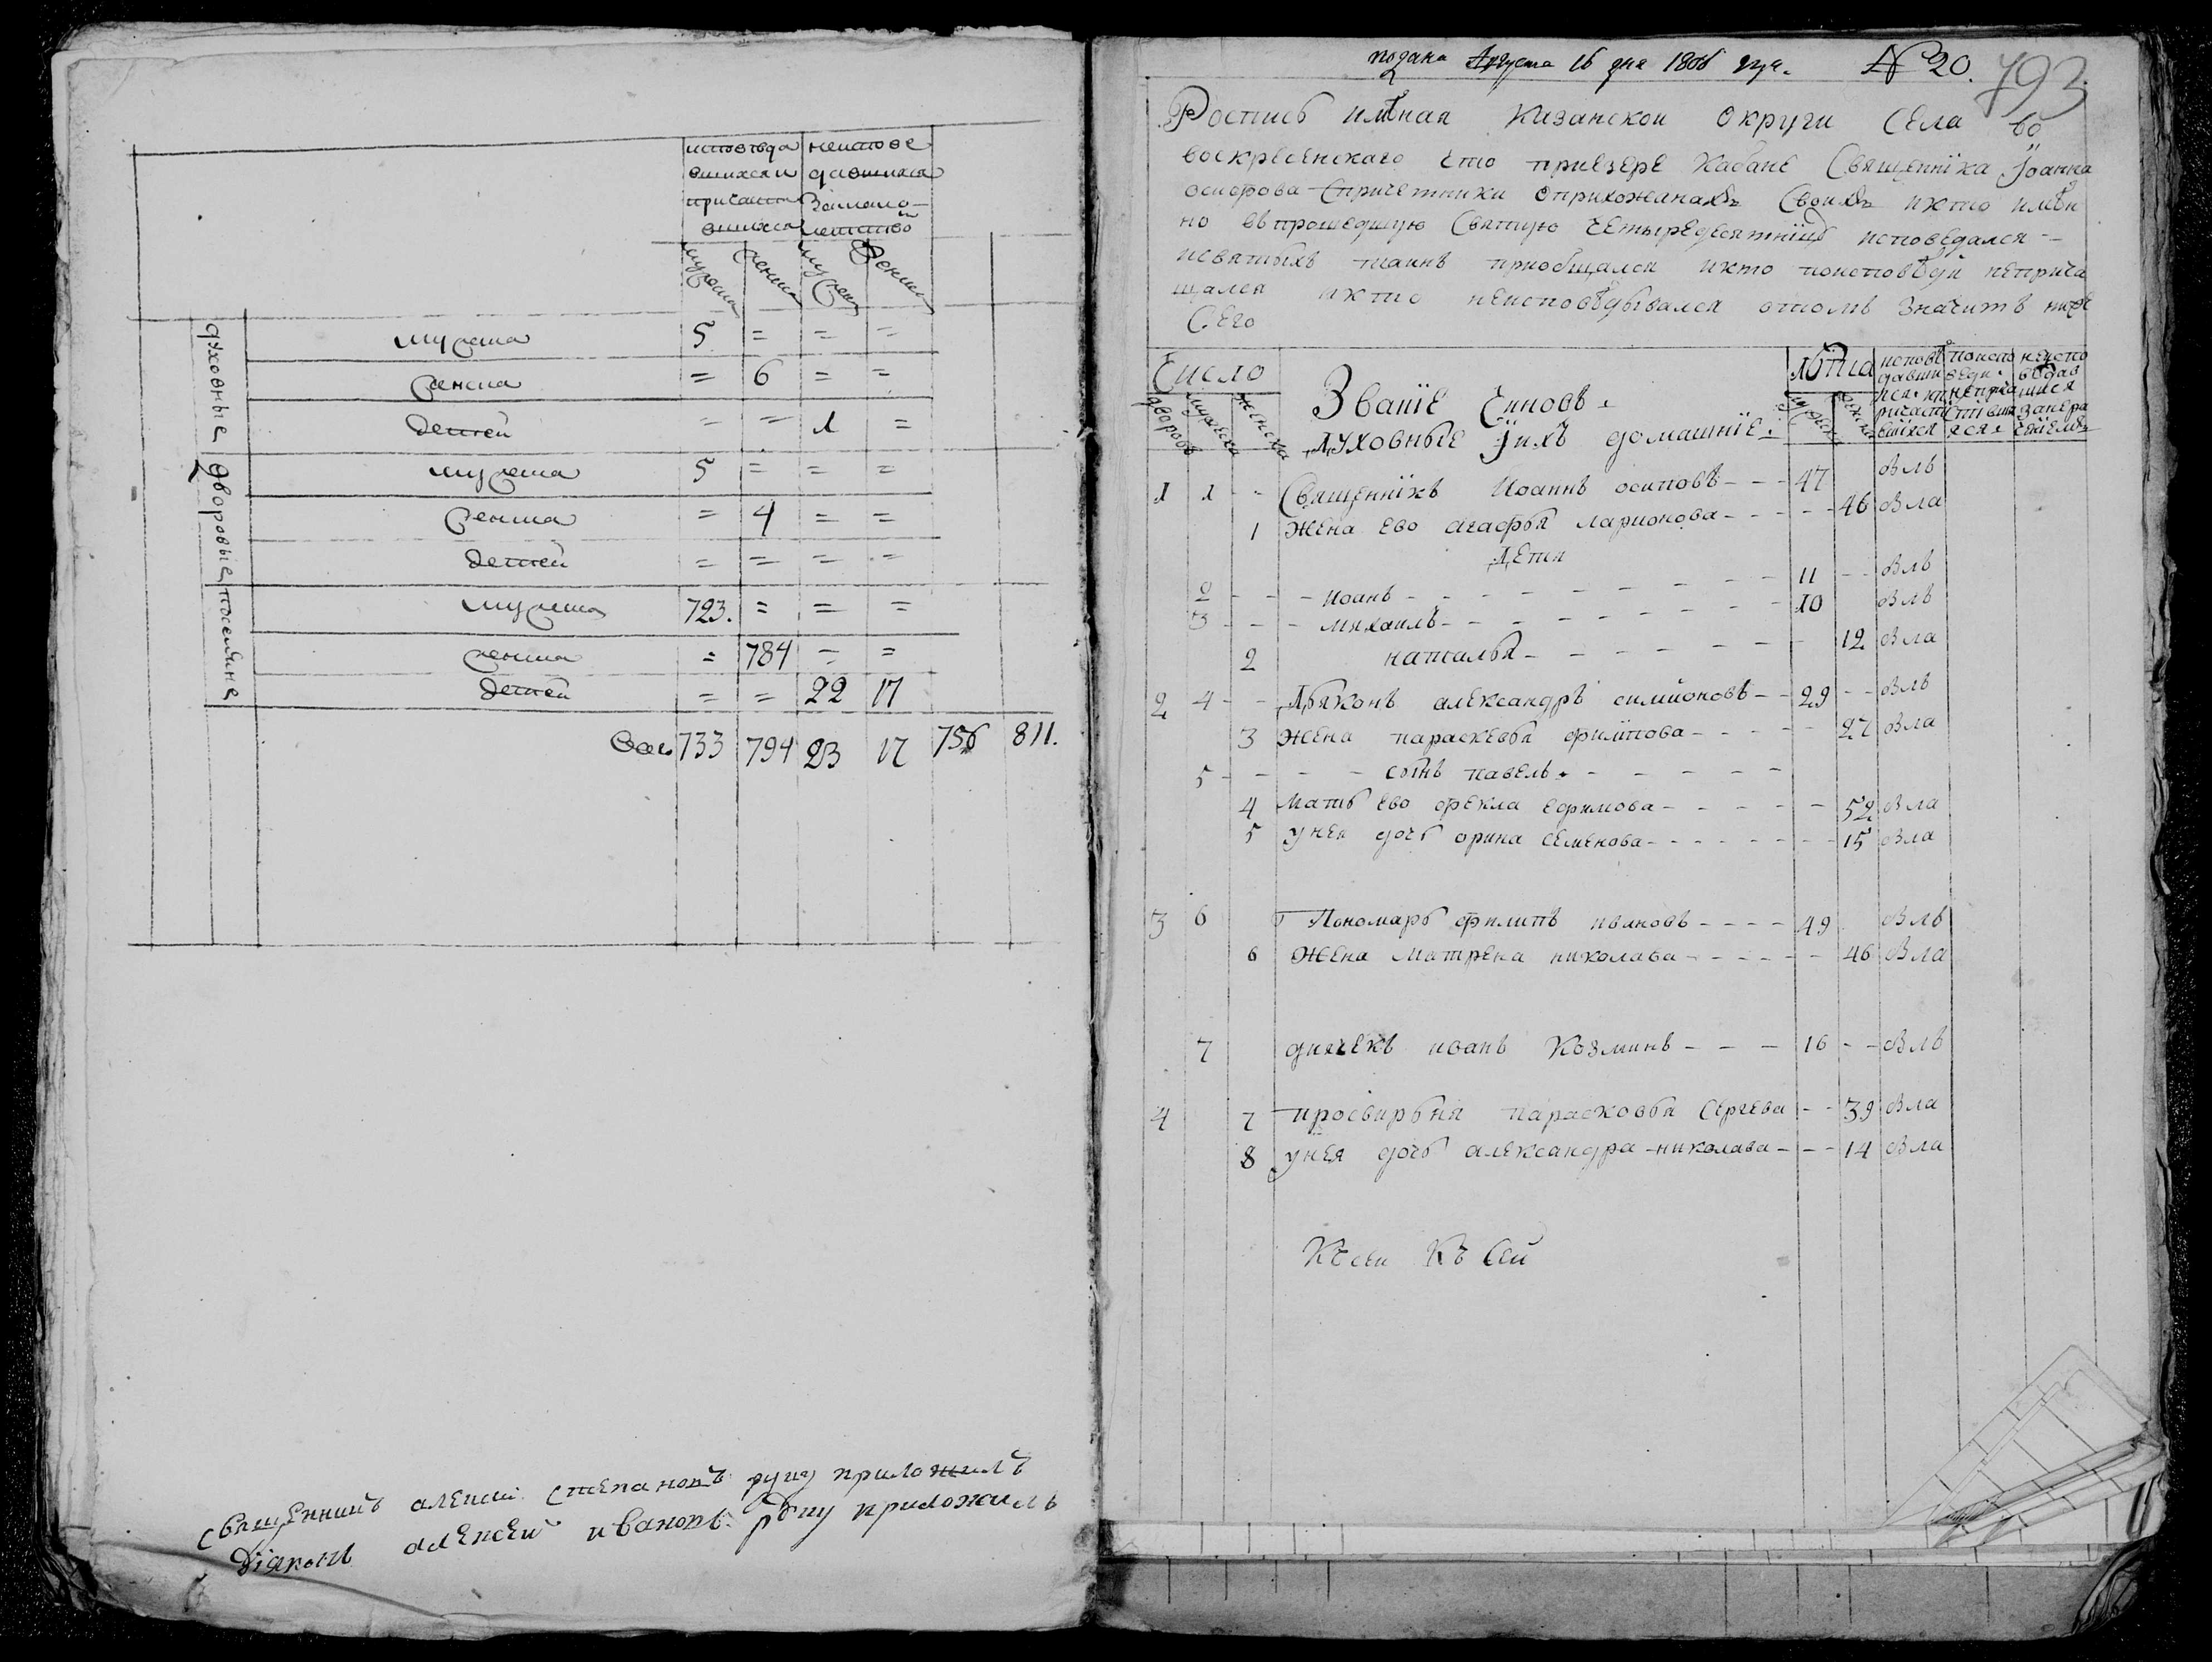 исповеда неиспове
вшихся и давшихся
причасти За мало-
вшихся летство
мужеска женска мужеск женска
духовные
мужеска 5 = = =
женска = 6 = =
детей = = 1 =
дворовые
мужеска 5 = = =
женска = 4 = =
детей = = = =
поселяне
мужеска 723. = = =
женска = 784 = =
детей = = 22 17
Всех 733 794 23 17 756 811.
священникъ алексей Степановъ руку приложилъ
діаконъ алексей ивановъ руку приложилъ
подана Августа 16 дня 1806 года. № 20. 793
Роспись имѣная Казанской Округи Села во
воскресенскаго что приезере Кабане Священнїка Їоанна
осипова Спричетники оприхожанахъ Своихъ ихто имѣн
но въпрошедшую Святую четыредесятнїцу исповедался -
исвятыхъ таинъ приобщался ихто поисповѣди неприча
щался ихто неисповѣдывался отомъ Значитъ ниже
Сего
Число Званїе Чиновъ. лѣта
дворовъ мужеска женска Духовные Їихъ домашнїе: мужеска женска
исповѣ давши ся и п ричасти вшїхся
поиспо веди непріча стівши яся
неиспо ведав шися занера чениемъ
1 1 - Священнїкъ Иоаннъ осиповъ - - - 47 Влъ
1 Жена ево агафья ларионова - - - - - 46 Вла
Дети
2 - - - иоанъ - - - - - - - 11 - - Влъ
3 - - - михаилъ - - - - - - - 10 Влъ
2 наталья - - - - - - - 12 Вла
2 4 - - Дьяконъ александръ симионовъ - - 29 - - Влъ
3 Жена параскевья филипова - - - - - 27 Вла
5 - - - - сынъ павелъ - - - - - -
4 Мать ево фекла ефимова - - - - - 52 Вла
5 унея дочь орина семенова - - - - - - 15 Вла
3 6 Пономарь филипъ ивановъ - - - - 49 Влъ
6 Жена матрена николава - - - - - - 46 Вла
7 дьячекъ иванъ Козминъ - - - 16 - - Влъ
4 7 просвирьня парасковья Сергева - - 39 Вла
8 унея дочь александра николава - - - 14 Вла
Къ сеи Къ Сей